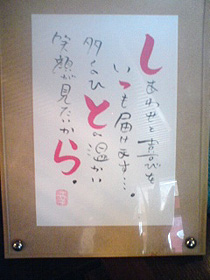 しあわせと喜びを
いつも届けます…。
多くのひとの温かい
笑顔が見たいから。